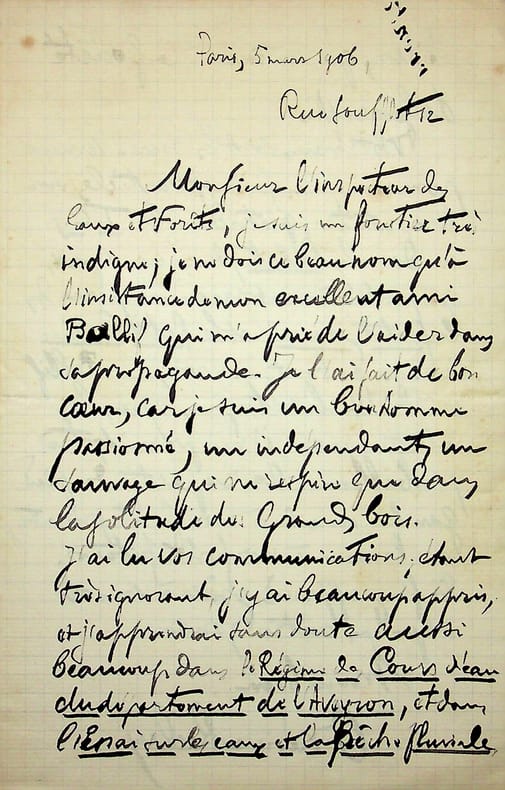 Paris, 5 mars 1906,
Rue Soufflot 12
Monsieur l'inspecteur des
Eaux et Forêts, je suis un forestier très
indigne; je ne dois ce beau nom qu'à
l'insistance de mon excellent ami
qui m'a prié de l'aider dans
sa propagande. Je l'ai fait de bon
cœur, car je suis un bonhomme
passionné, un indépendant, un
sauvage qui ne respire que dans
la solitude des Grands bois.
J'ai lu vos communications; étant
très ignorant, j'y ai beaucoup appris,
et j'apprendrai sans doute aussi
beaucoup dans le Régime des Cours d'eau
du département de l'Aveyron, et dans
l'Essai sur les eaux et la Pêche fluviale